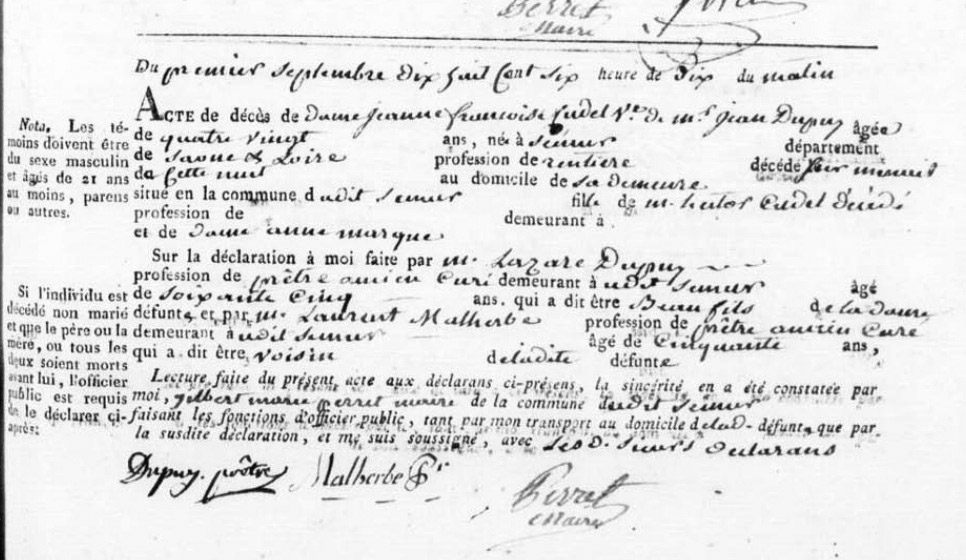 Perret
Maire
Du premier Septembre dix huit Cent Six heure de Dix du matin
ACTE de décès de Dame Jeanne françoise Cudel Ve. de mr. jean Dupuy âgée
de quatre vingt ans, née à Semur département
de Saone & Loire profession de rentiere décédé sur minuit
de Cette nuit au domicile de Sa demeure
situé en la commune dudit Semur fille de mr. Cudel
profession de demeurant à
et de Dame anne marque
Nota. Les témoins
doivent être
du sexe masculin
et âgés de 21 ans
au moins, parens
ou autres.
Sur la déclaration à moi faite par mr. Lazare Dupuy
profession de prêtre ancien Curé demeurant à udit Semur âgé
de Soixante Cinq ans. qui a dit être Beau fils de la dame
défunte et par mr. Laurent Malherbe profession de prêtre ancien Curé
demeurant à udit Semur âgé de Cinquante ans,
qui a dit être voisin de ladite défunte
Si l'individu est
décédé non marié
et que le père ou la
mère, ou tous les
deux soient morts
avant lui, l'officier
public est requis
de le déclarer ci-
après:
Lecture faite du présent acte aux déclarans ci-présens, la sincérité en a été constatée par
moi, gilbert marie perret maire de la commune dudit Semur
faisant les fonctions d'officier public, tant par mon transport au domicile de lad. défunte que par
la susdite déclaration, et me suis soussigné, avec lesd. Sieurs declarans
Dupuy. prêtre Malherbe Ptr
Perret
Maire